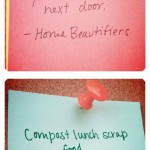 next door.
- Home Beautifiers
Compost lunch scrap
food